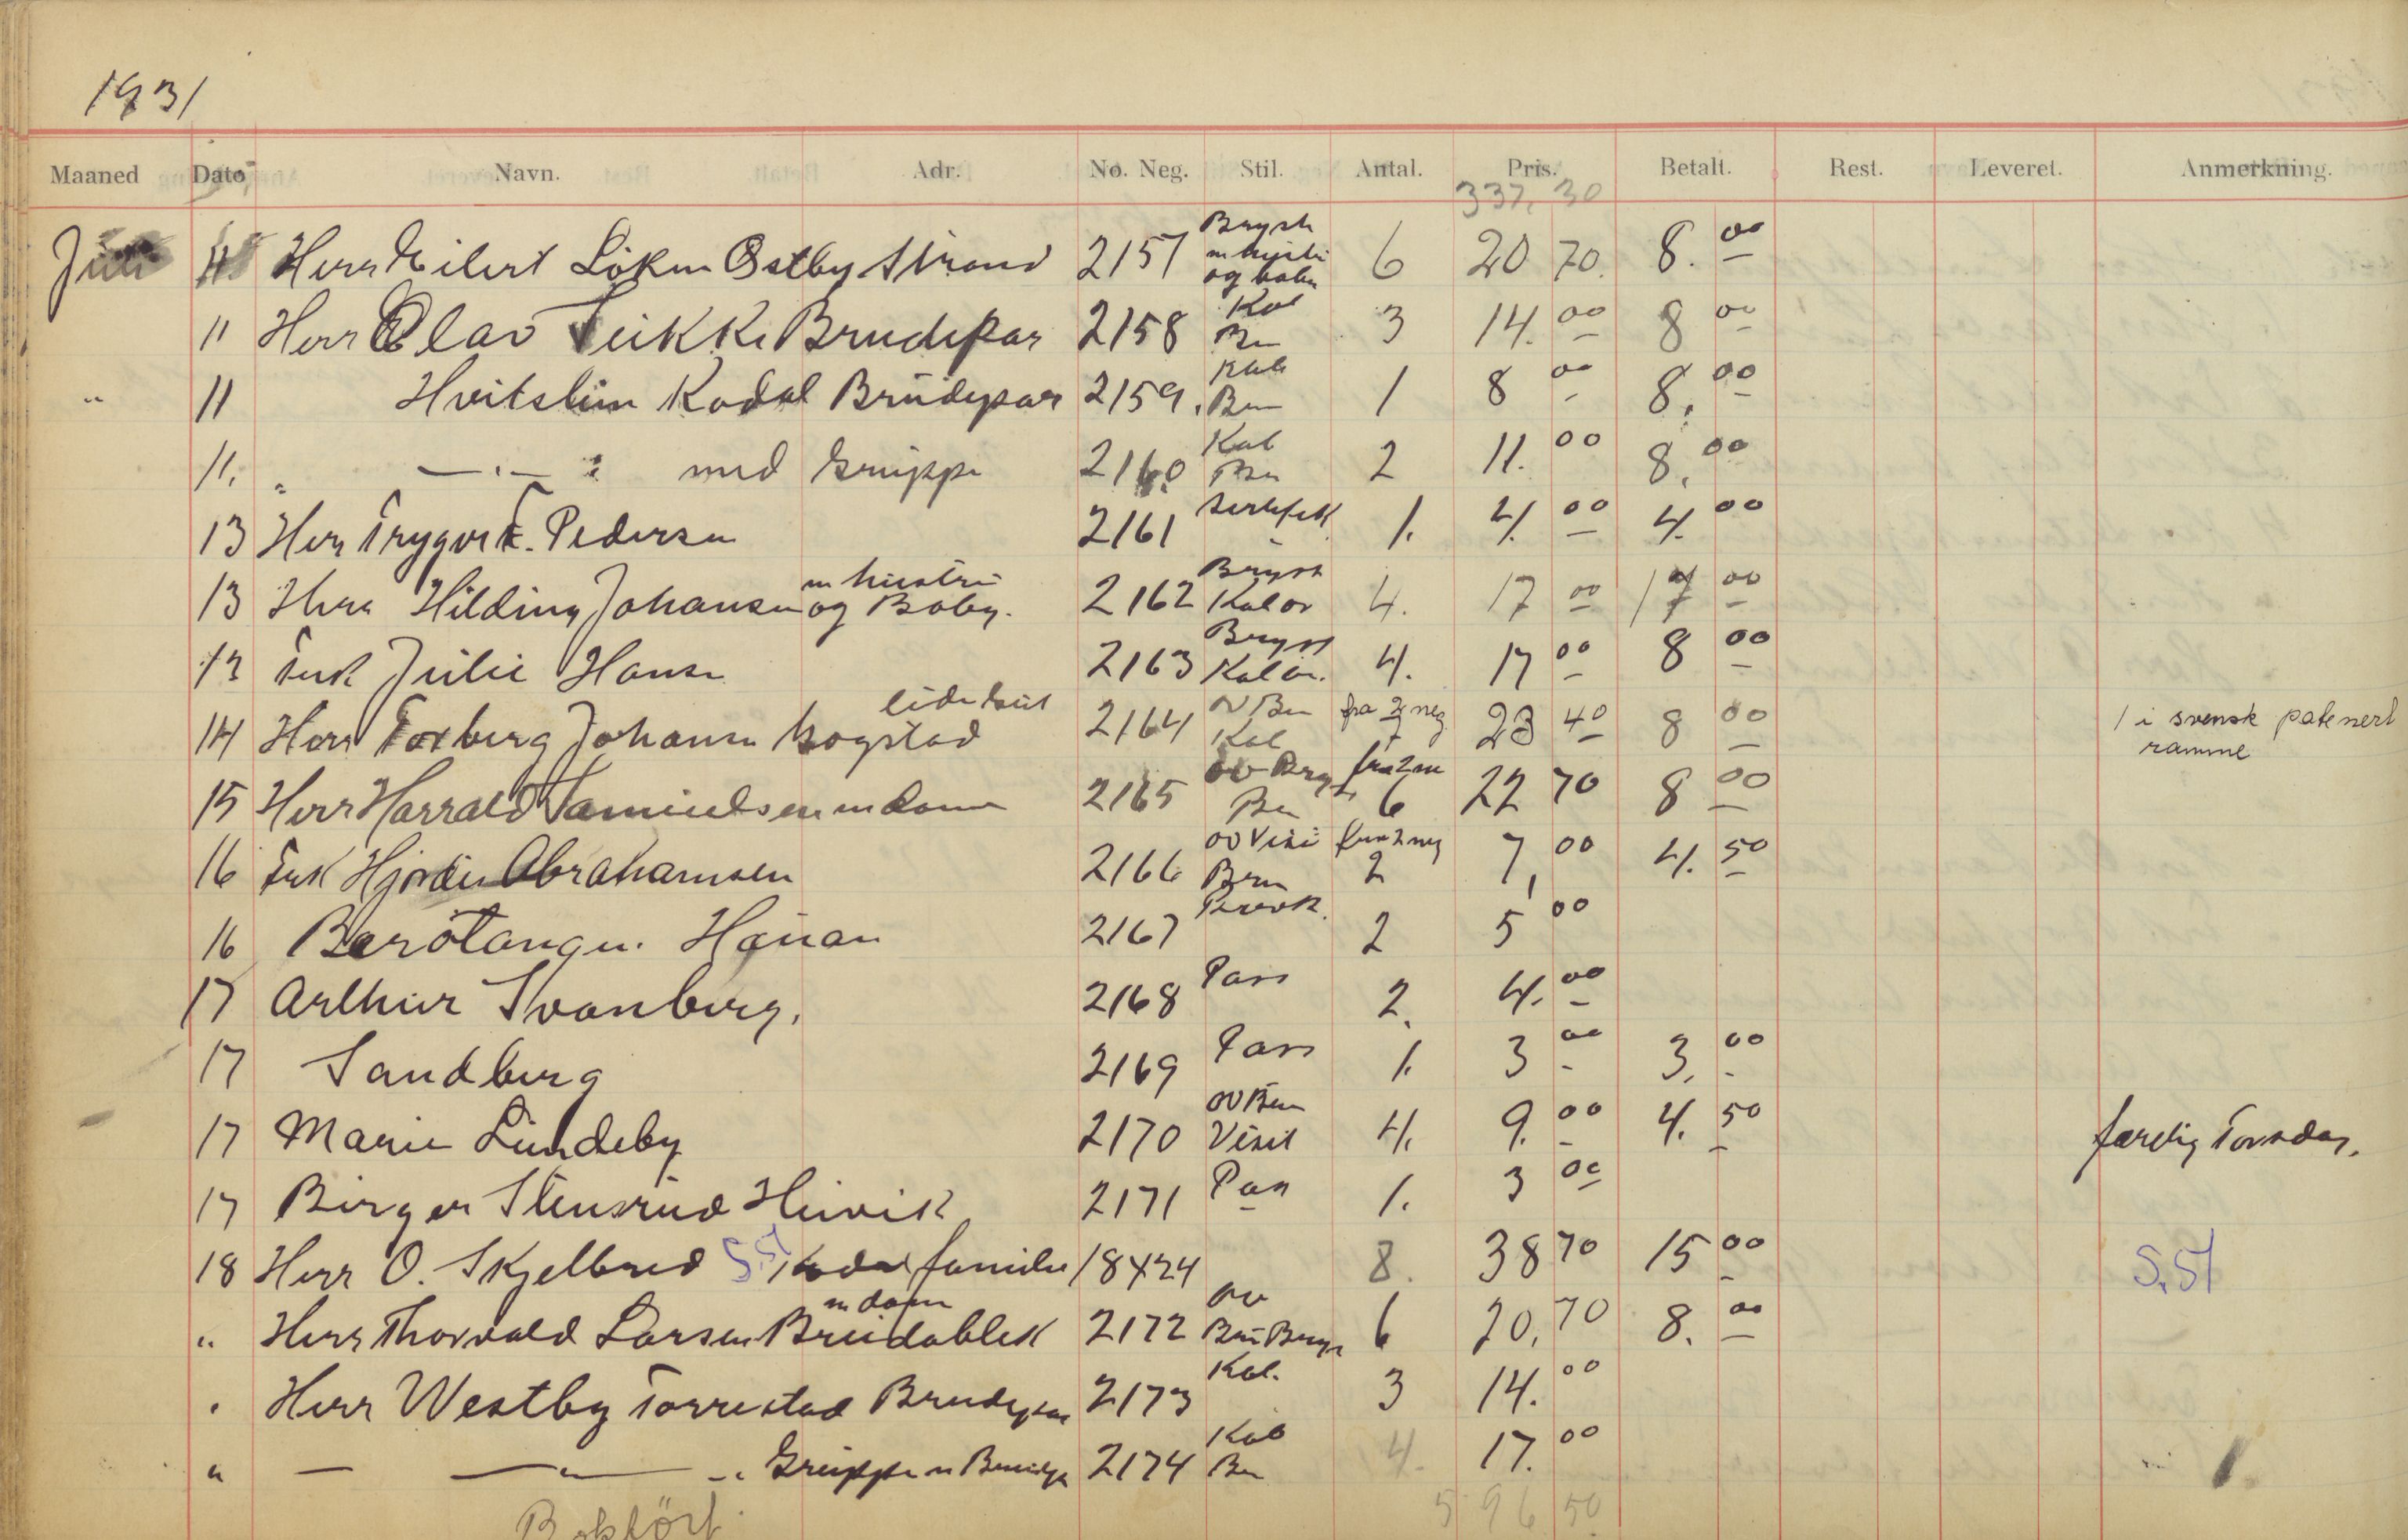 1931
Maaned Dato Navn. Adr. No. Neg. Stil. Antal. Pris. Betalt. Rest. Leveret. Anmerkning.
337, 30
Juli 11 Herr Eilert Löken Östby Strand 2157 Bryst m hustru og baby 6 20 70. 8. 00
11 Herr Olav Brudepar 2158 Kab Ben 3 14. 00 8 00
" 11 Hvitstein Kodal Brudepar 2159. Kab Ben 1 8 00 8. 00
11. " — " — " med Gruppe 2160 Kab Ben 2 11. 00 8. 00
13 Herr Trygve F. Pedersen 2161 1. 4. 00 4. 00
13 Herr Hilding Johansen m hustru og Baby. 2162 Bryst Kabin 4. 17 00 17 00
13 Frk Julie Hansen 2163 Bryst Kabin. 4. 17 00 8 00
14 Herr Torberg Johansen Bogstad 2164 OV Ben Kab fra 2 neg 23 40 8 00 1 i svensk patenert ramme
15 Herr Harrald Samuelsen m dame 2165 OV Bry Ben fra 2 ne 6 22 70 8 00
16 Frk Hjördis Abrahamsen 2166 OV Visi Brn fra 2 neg 2 7, 00 4. 50
16 Hauan 2167 2 5 00
17 Arthur Svanberg. 2168 Pass 2. 4. 00
17 Sandberg 2169 Pass 1. 3 00 3. 00
17 Marie Lundeby 2170 OV Ben Visit 4. 9. 00 4. 50 færdig Torsdag.
17 Birger Stensrud Huvik 2171 Pas 1. 3 00
18 Herr O. Skjelbred S.51 Kodal familie 18424 8. 38 70 15 00 S.51
" Herr Thorvald Larsen m dame Breidablik 2172 OV Bry 6 20. 70 8. 00
" Herr Westby Torrestad Brudepar 2173 Kab. 3 14. 00
" — — " — " Gruppe m Brudep 2174 Kab Ben 4. 17. 00
Bokfört. 596 50